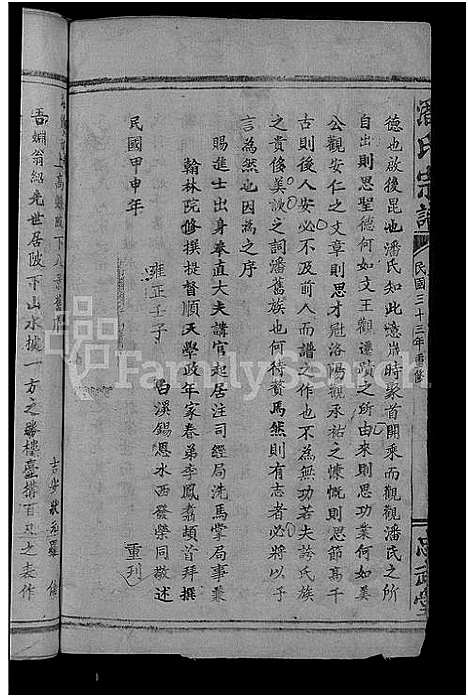 潘氏宗譜
民國三十三年重修
忠武堂
德也啟後昆也潘氏知此境岸時聚首開乘而觀觀潘氏之所
自出則思聖德何如文王觀遷蹟之所由來則思功業何如姜
公觀安仁之文章則思才冠洛陽觀承祐之慷慨則思節高千
古則後人安必不及前人而譜之作也不為無功若夫誇氏族
之貴侈美談之詞潘舊族也何待贅焉然則有志者必將以予
言為然也因為之序
賜進士出身奉直大夫講官起居注司經局洗馬掌局事兼
翰林院修撰提督順天學政年家眷弟李鳳翥頓首拜撰
雍正壬子
白溪錫恩水西發榮同敬述
民國甲申年
重刊
上高
吉安狀元羅
翁紹先世居陂下山水據一方之勝樓臺攢百尺之表作
FamilySearch